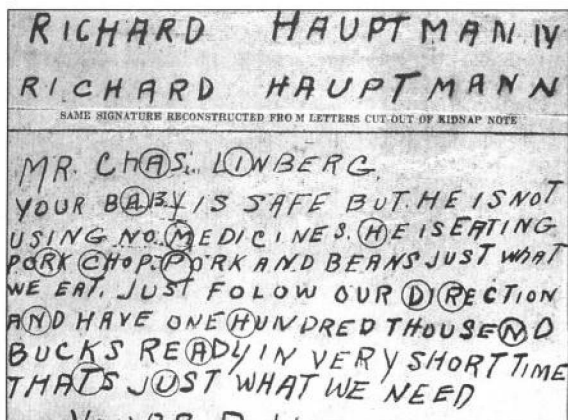 RICHARD HAUPTMANN
RICHARD HAUPTMANN
SAME SIGNATURE RECONSTRUCTED FROM LETTERS CUT OUT OF KIDNAP NOTE
MR. ChAS. LINBERG,
YOUR BABY IS SAFE BUT HE IS NOT
USING NO MEDICINES. HE IS EATING
PORK CHOP PORK AND BEANS JUST WHAT
WE EAT. JUST FOLOW OUR DIRECTION
AND HAVE ONE HUNDRED THOUSEND
BUCKS READY IN VERY SHORT TIME
THATS JUST WHAT WE NEED